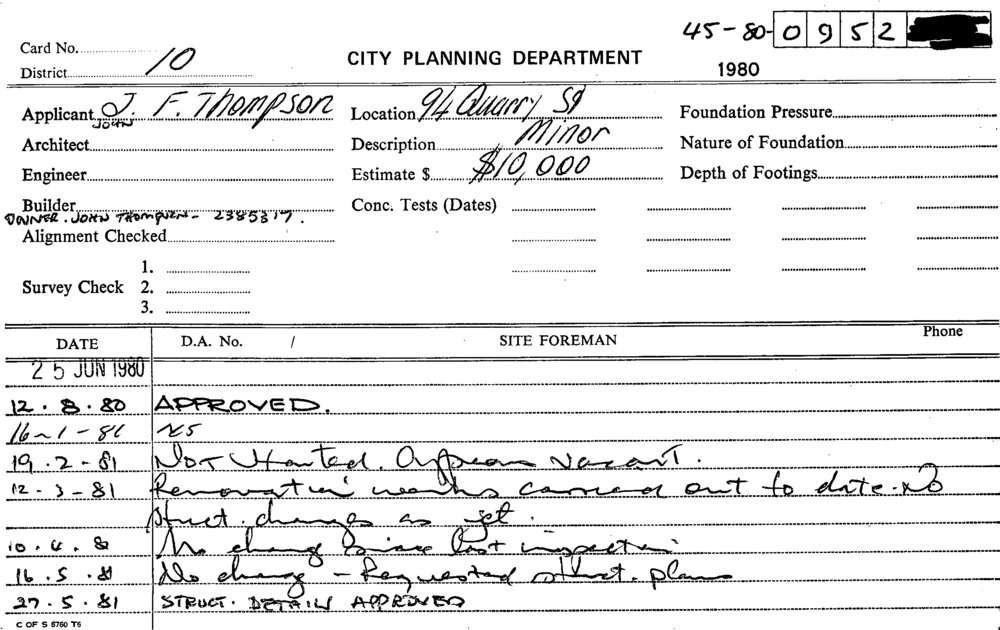 45-80-0952
Card No. 10
CITY PLANNING DEPARTMENT
District
1980
Applicant J. F. Thompson
JOHN
Location 94 Quarry St
Foundation Pressure
Architect
Description Minor
Nature of Foundation
Engineer
Estimate $ $10,000
Depth of Footings
Builder
Conc. Tests (Dates)
OWNER. JOHN THOMPSON - 2385317.
Alignment Checked
1.
Survey Check 2.
3.
DATE D.A. No. / SITE FOREMAN Phone
25 JUN 1980
12.8.80 APPROVED.
16-1-81 NS
19.2-81 Not Started. Appears vacant.
12-3-81 Renovation works carried out to date. No
struct. changes as yet.
10.4.8 No change since last inspection
16.5.81 No change - Requested struct. plans
27.5.81 STRUCT. DETAILS APPROVED
C OF S 6760 T6